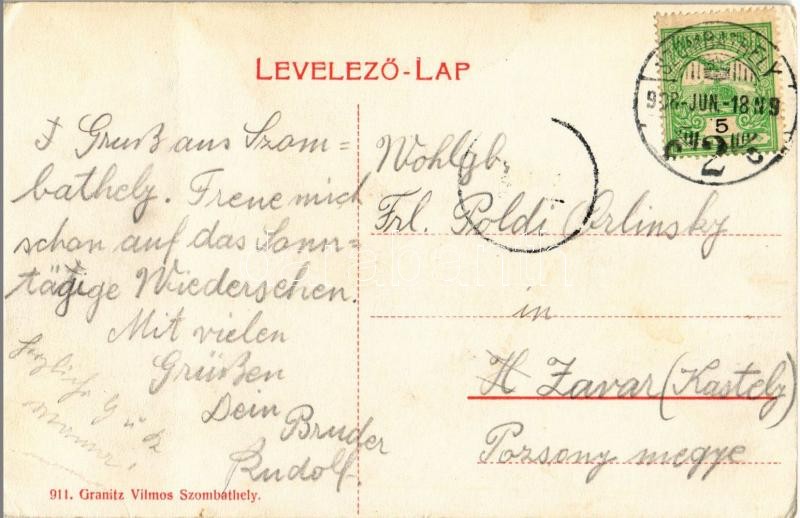 LEVELEZŐ-LAP
Gruß aus Szom=
bathely. Freue mich
schon auf das Sonn=
tägige Wiedersehen.
Mit vielen
Grüßen
Dein
Bruder
Rudolf
Wohlgb.
Frl. Poldi Orlinsky
in
Zavar (Kastely)
Pozsony megye
JUN.-18
5
911. Granitz Vilmos Szombathely.